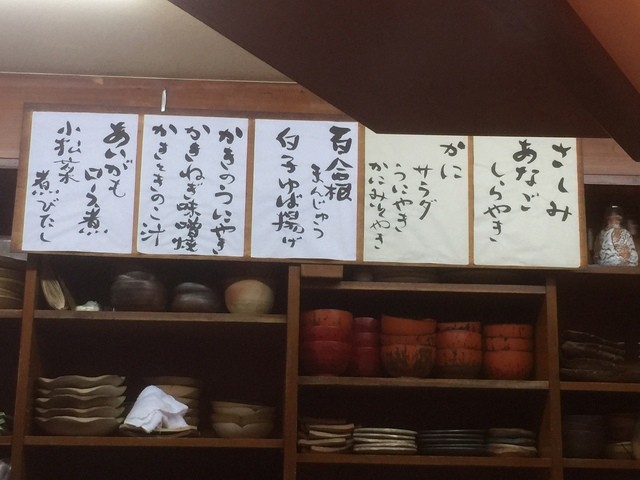 さしみ
あなご
しらやき
かに
サラダ
うにやき
かにみそやき
百合根
まんじゅう
白子ゆば揚げ
かきのうにやき
かきねぎ味噌焼
かきときのこ汁
あいがも
ロース煮
小松菜
煮びたし